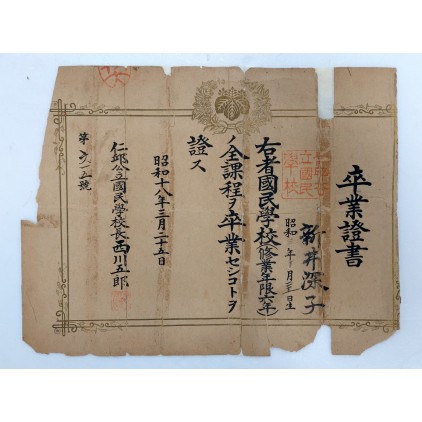 卒業證書
新井深子
昭和 年 月 日生
右者國民學校(修業年限六年)
ノ全課程ヲ卒業セシコトヲ
證ス
昭和十八年三月二十五日
仁邱公立國民學校長西川五郎
第 一五號
立國民
學校